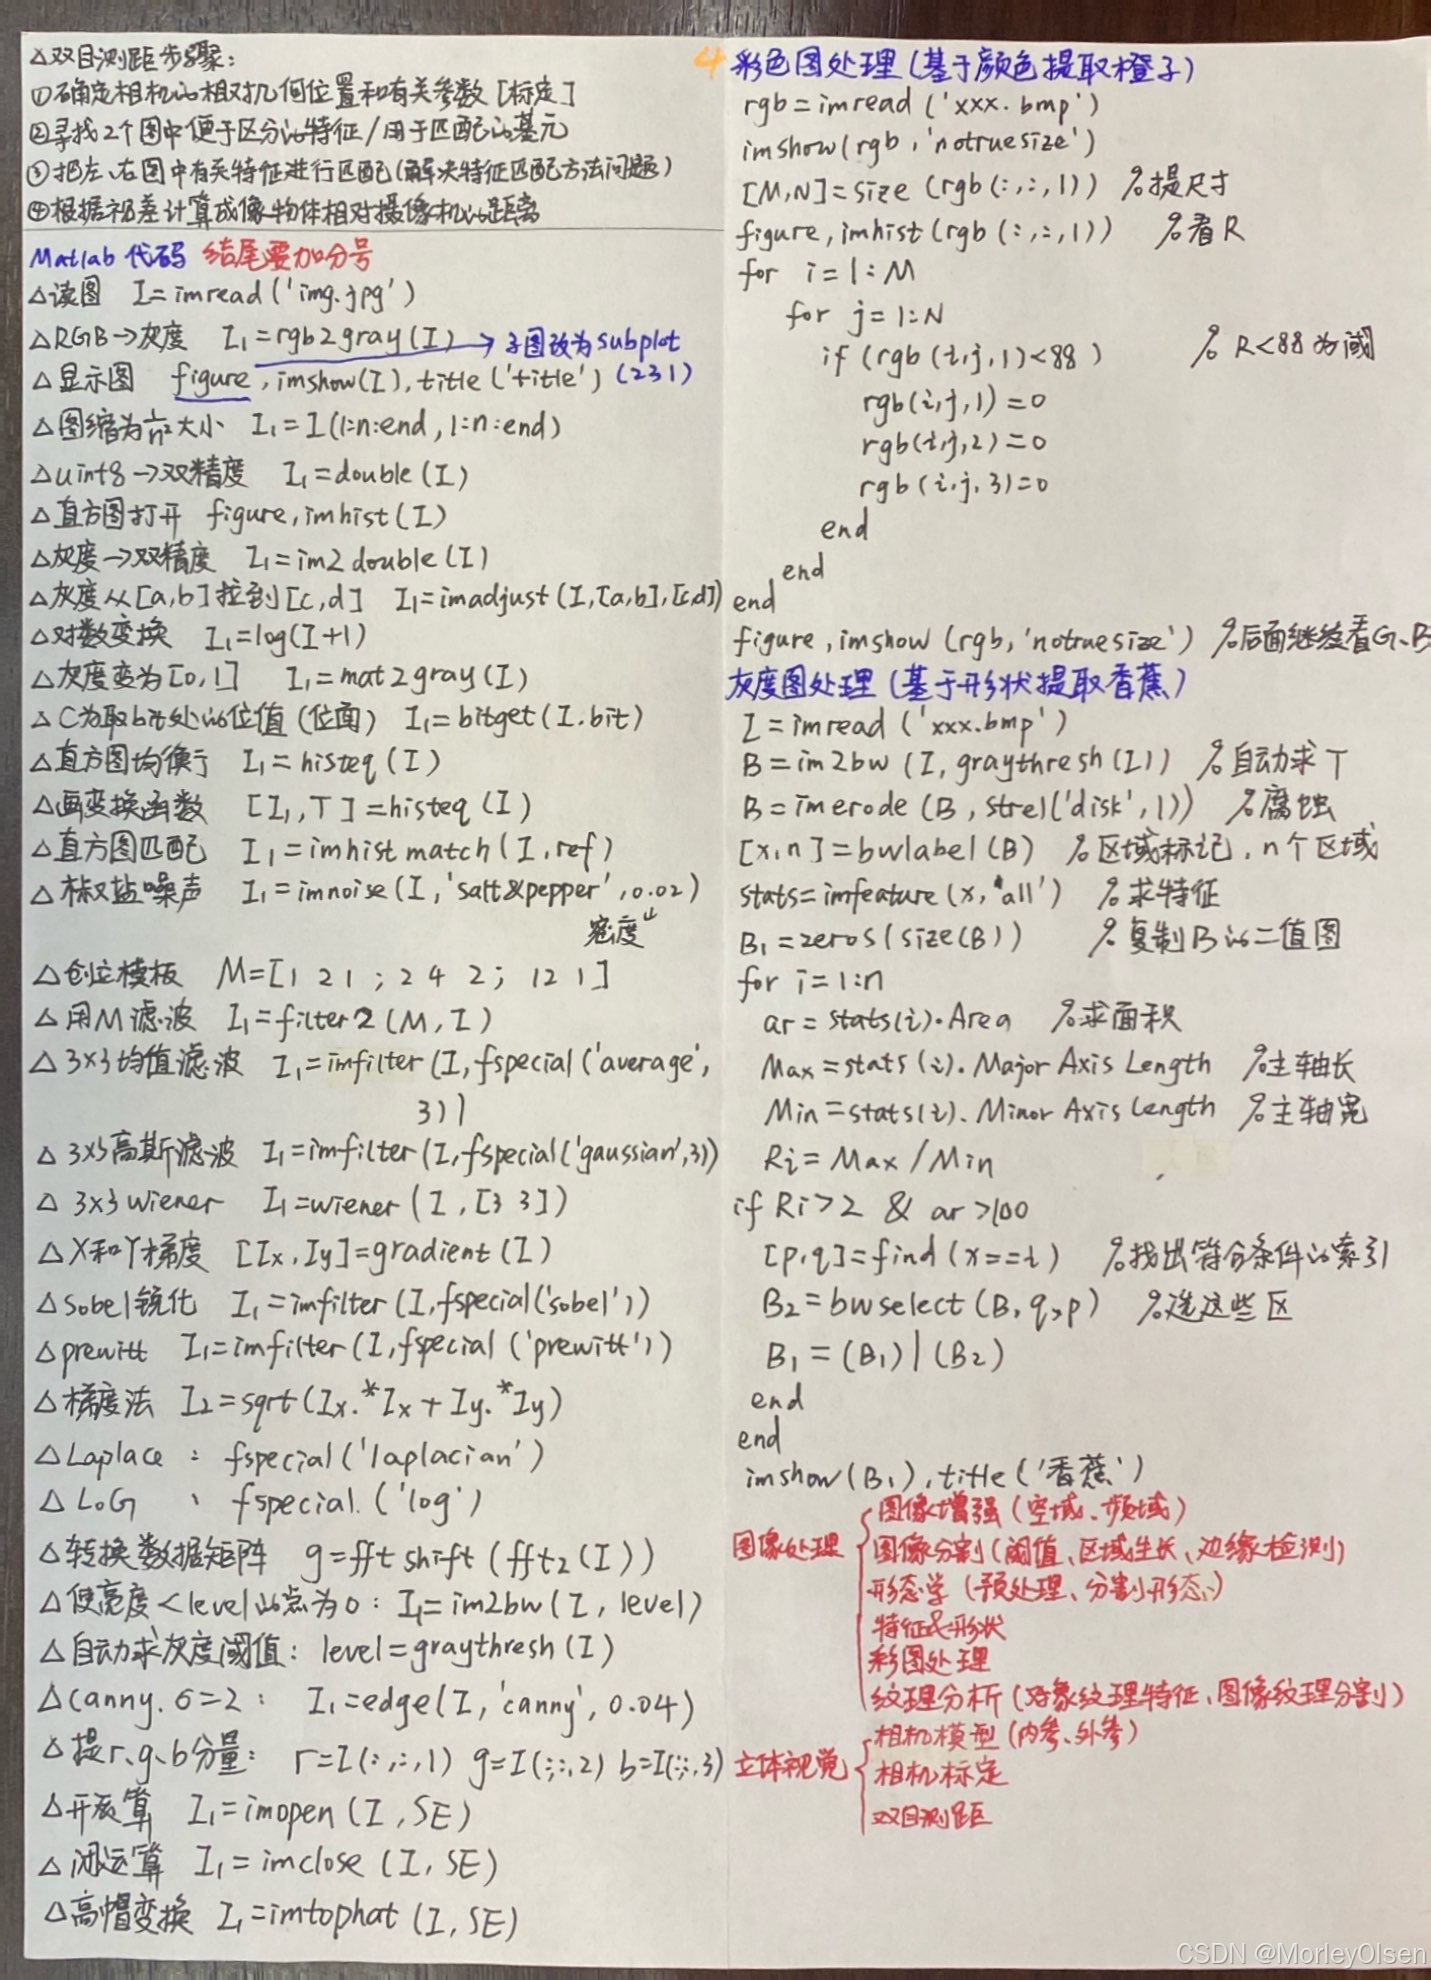 △双目测距步骤:
①确定相机的相对几何位置和有关参数[标定]
②寻找2个图中便于区分的特征/用于匹配的基元
③把左、右图中有关特征进行匹配(解决特征匹配方法问题)
④根据视差计算成像物体相对摄像机的距离
Matlab 代码 结尾要加分号
△读图 I=imread('img.jpg')
△RGB→灰度 I₁=rgb2gray(I) → 子图改为subplot
△显示图 figure,imshow(I),title('title') (231)
△图缩为1/n²大小 I₁=I(1:n:end,1:n:end)
△uint8→双精度 I₁=double(I)
△直方图打开 figure,imhist(I)
△灰度→双精度 I₁=im2double(I)
△灰度从[a,b]拉到[c,d] I₁=imadjust(I,[a,b],[c,d])
△对数变换 I₁=log(I+1)
△灰度变为[0,1] I₁=mat2gray(I)
△C为取bit处的位值(位面) I₁=bitget(I.bit)
△直方图均衡 I₁=histeq(I)
△画变换函数 [I₁,T]=histeq(I)
△直方图匹配 I₁=imhistmatch(I,ref)
△椒盐噪声 I₁=imnoise(I,'salt&pepper',0.02)
密度
△创立模板 M=[1 2 1;2 4 2;1 2 1]
△用M滤波 I₁=filter2(M,I)
△3×3均值滤波 I₁=imfilter(I,fspecial('average',
3))
△3×3高斯滤波 I₁=imfilter(I,fspecial('gaussian',3))
△3×3wiener I₁=wiener(I,[3 3])
△X和Y梯度 [Ix,Iy]=gradient(I)
△sobel锐化 I₁=imfilter(I,fspecial('sobel'))
△prewitt I₁=imfilter(I,fspecial('prewitt'))
△梯度法 I₂=sqrt(Ix.*Ix+Iy.*Iy)
△Laplace : fspecial('laplacian')
△LoG : fspecial.('log')
△转换数据矩阵 g=fftshift(fft2(I))
△使亮度<level的点为0: I₁=im2bw(I,level)
△自动求灰度阈值: level=graythresh(I)
△canny.σ=2: I₁=edge(I,'canny',0.04)
△提r、g、b分量: r=I(:,:,1) g=I(:,:,2) b=I(:,:,3)
△开运算 I₁=imopen(I,SE)
△闭运算 I₁=imclose(I,SE)
△高帽变换 I₁=imtophat(I,SE)
4 彩色图处理(基于颜色提取橙子)
rgb=imread('xxx.bmp')
imshow(rgb,'notruesize')
[M,N]=size(rgb(:,:,1)) %提尺寸
figure,imhist(rgb(:,:,1)) %看R
for i=1:M
for j=1:N
if(rgb(i,j,1)<88) % R<88为阈
rgb(i,j,1)=0
rgb(i,j,2)=0
rgb(i,j,3)=0
end
end
end
figure,imshow(rgb,'notruesize') %后面继续看G、B
灰度图处理(基于形状提取香蕉)
I=imread('xxx.bmp')
B=im2bw(I,graythresh(I)) %自动求T
B=imerode(B,strel('disk',1)) %腐蚀
[x,n]=bwlabel(B) %区域标记,n个区域
stats=imfeature(x,'all') %求特征
B₁=zeros(size(B)) %复制B的二值图
for i=1:n
ar=stats(i).Area %求面积
Max=stats(i).Major Axis Length %主轴长
Min=stats(i).Minor Axis Length %主轴宽
Ri=Max/Min
if Ri>2 & ar>100
[p,q]=find(x==i) %找出符合条件的索引
B₂=bwselect(B,q,p) %选这些区
B₁=(B₁)|(B₂)
end
end
imshow(B₁),title('香蕉')
图像处理
图像增强(空域、频域)
图像分割(阈值、区域生长、边缘检测)
形态学(预处理、分割形态)
特征与形状
彩图处理
纹理分析(对象纹理特征、图像纹理分割)
立体视觉
相机模型(内参、外参)
相机标定
双目测距
CSDN @MorleyOlsen